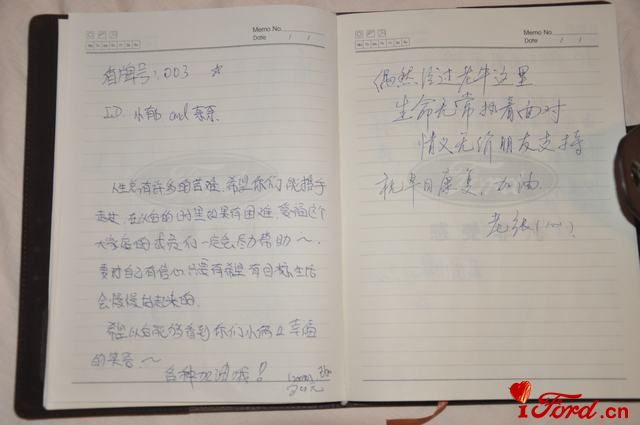 Memo No.
Date / /
酒牌号:003 ☆
ID 小郁 and 东东
人生总有许多的苦难,希望你们能携手
走过,在以后的日子里如果有困难,爱福这个
大家庭的成员们一定会尽力帮助~
要对自己有信心,只要有希望有目标,生活
会慢慢好起来的.
希望以后能够看到你们小俩口幸福
的笑容~
各种加油哦!
Memo No.
Date / /
偶然经过老牛这里
生命无常执着面对
情义无价朋友支持
祝早日康复,加油.
老张
iFord.cn